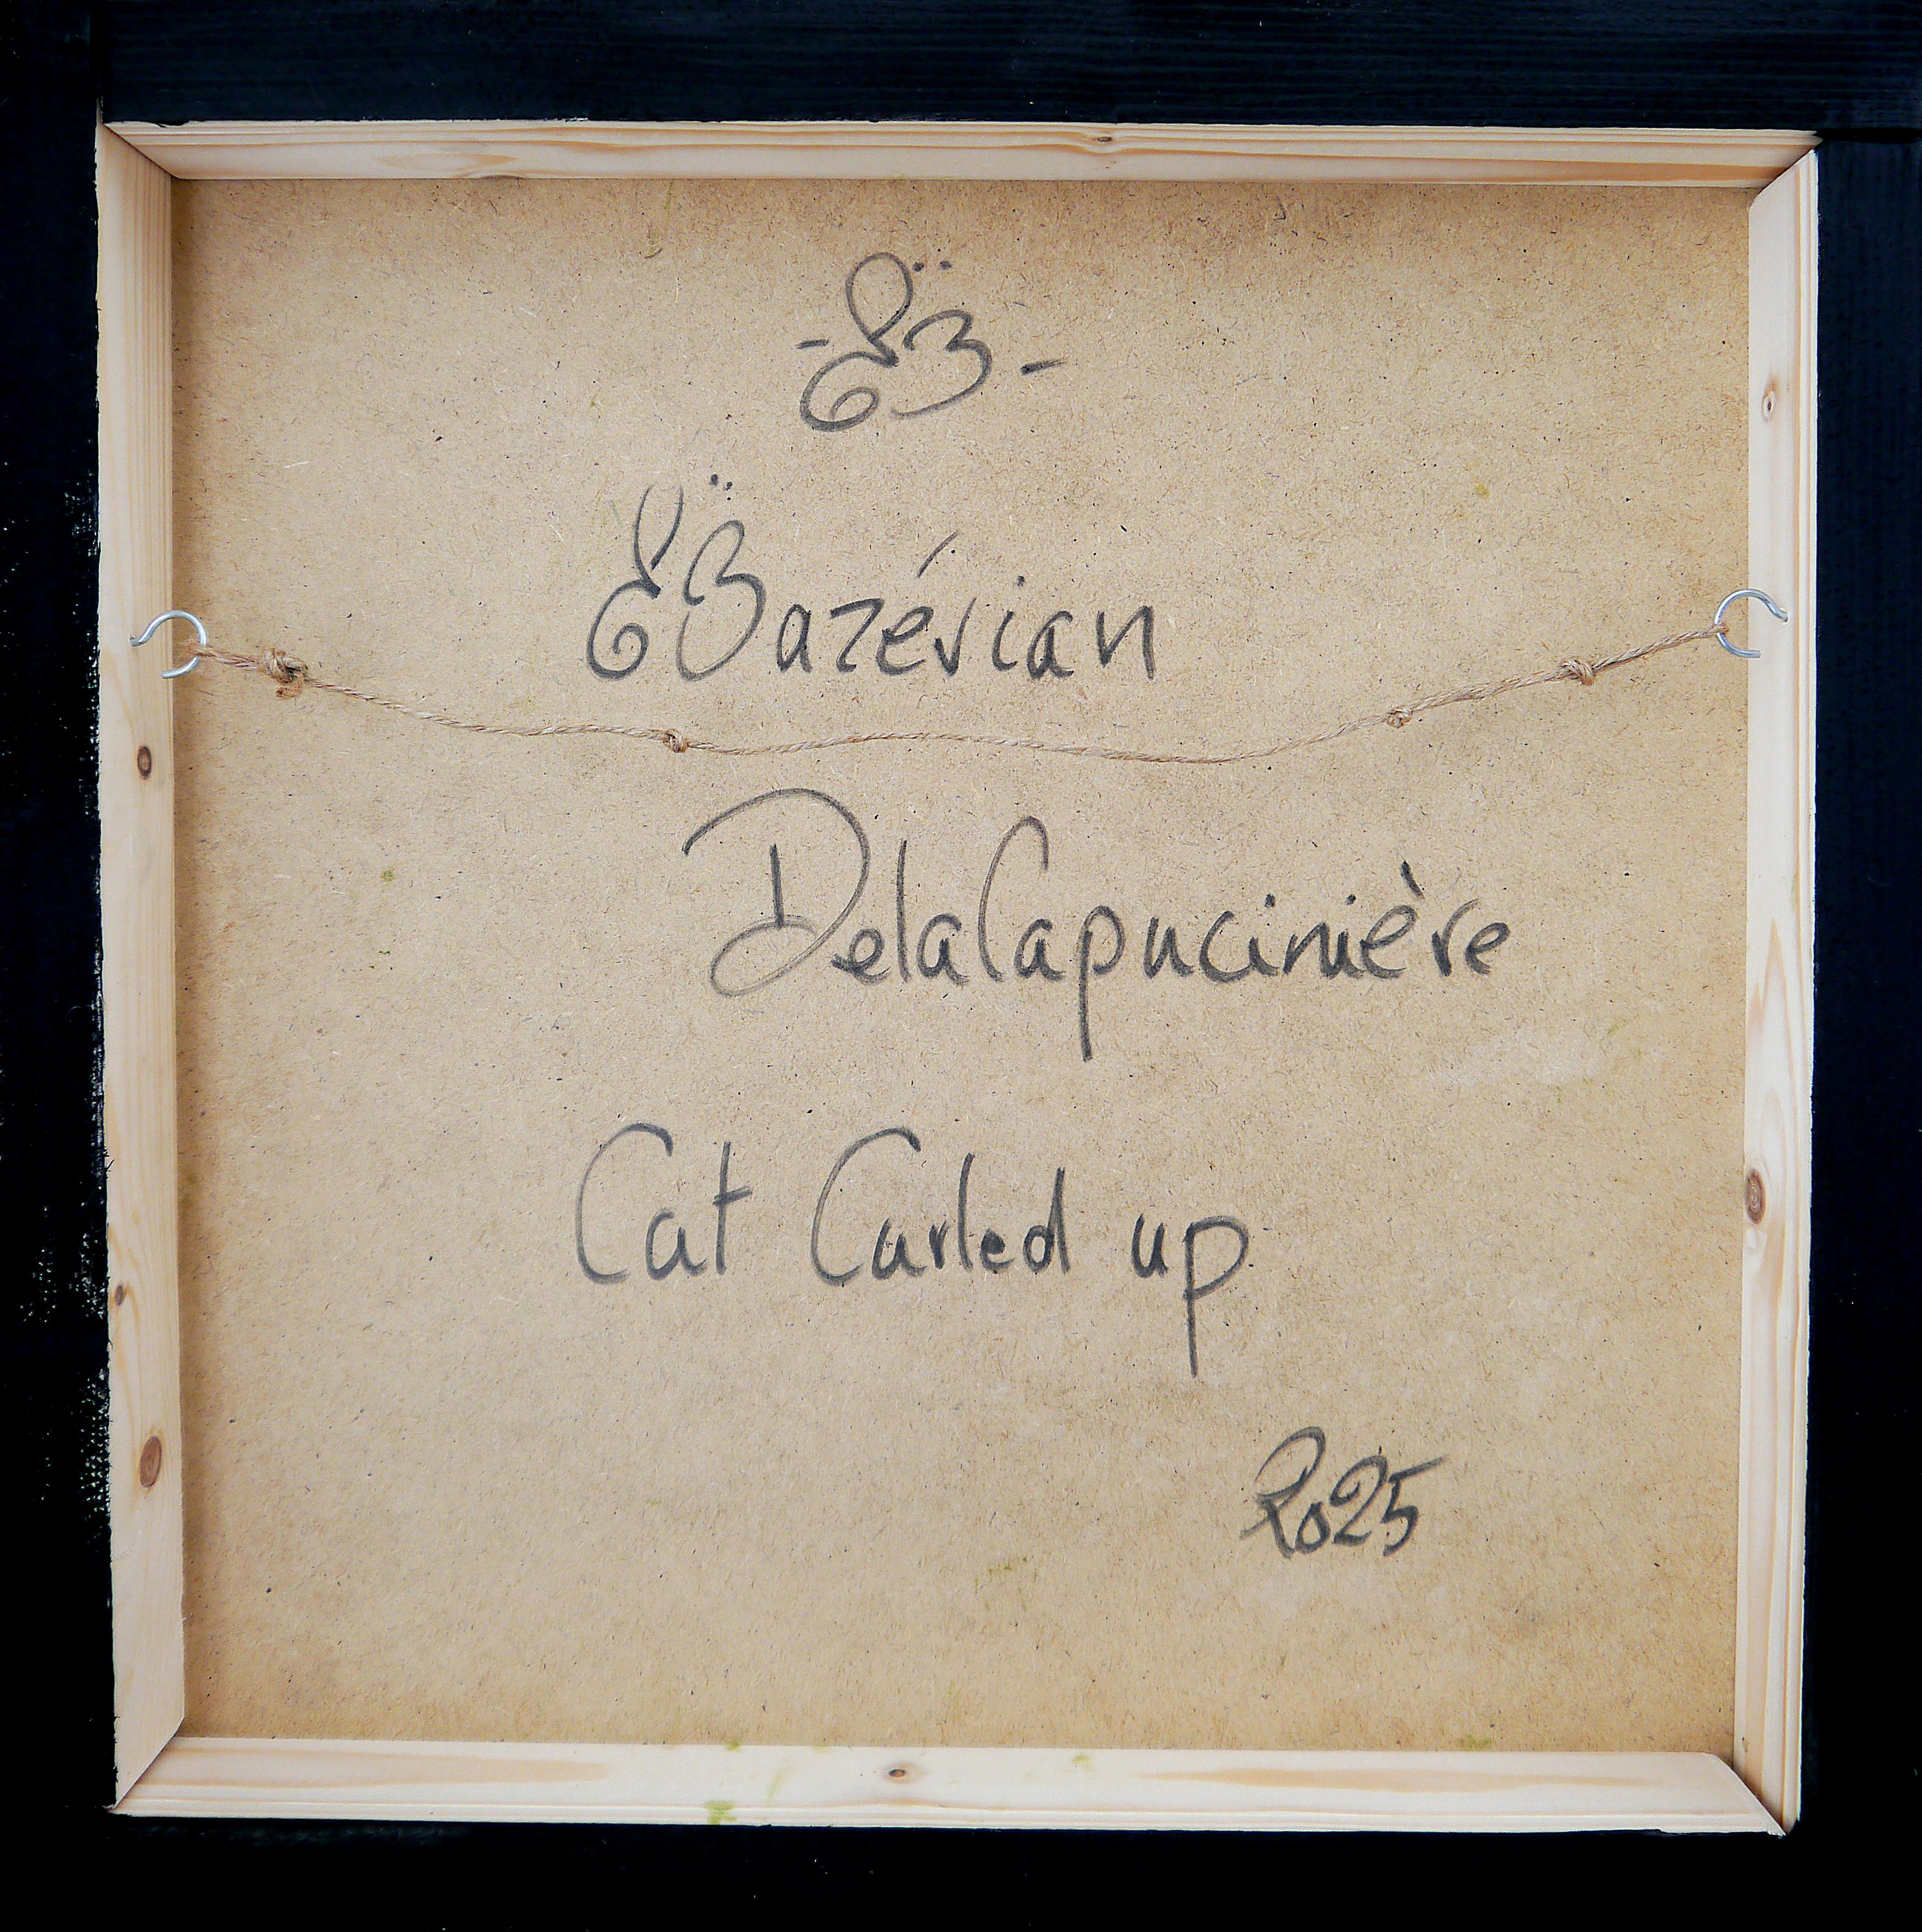 Bazérian
DelaCapucinière
Cat Curled up
2025